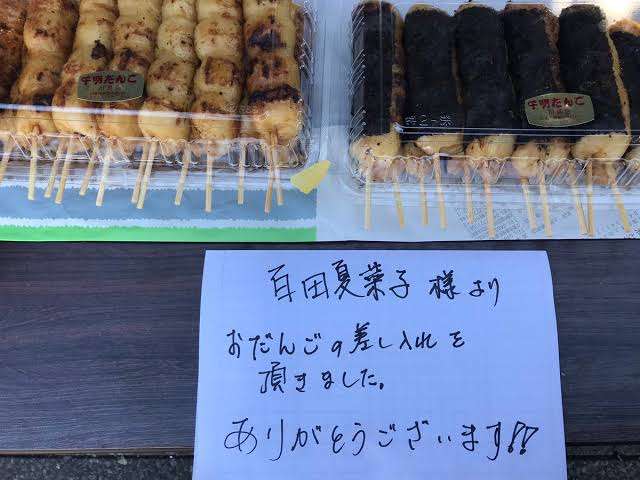 千明だんご
千明だんご
百田夏菜子様より
おだんごの差し入れを
頂きました。
ありがとうございます!!